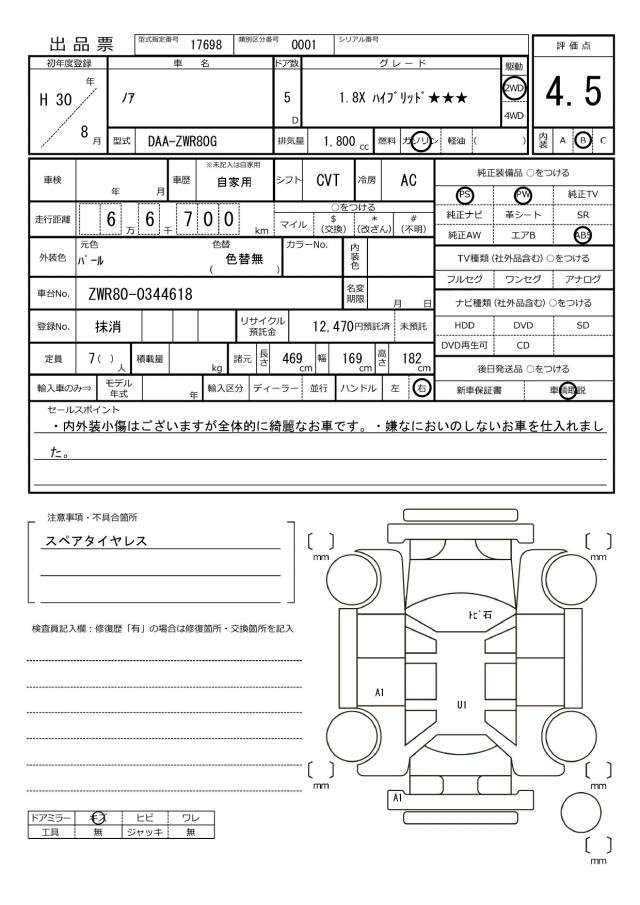 出品票 型式指定番号 17698 類別区分番号 0001 シリアル番号
評価点
4.5
内装 A B C
初年度登録 車名 ドア数 グレード 駆動
H 30 年 8 月
ノア 5 D 1.8X ハイブリッド★★★ 2WD
4WD
型式 DAA-ZWR80G 排気量 1,800 cc 燃料 ガソリン 軽油 ( )
車検 年 月 車歴 ※未記入は自家用 自家用 シフト CVT 冷房 AC
走行距離 6 万 6 千 7 0 0 km
○をつける
マイル $(交換) *(改ざん) #(不明)
外装色 元色 パール 色替 ( 色替無 ) カラーNo. 内装色
車台No. ZWR80-0344618 名変期限 月 日
登録No. 抹消 リサイクル預託金 12,470円預託済 未預託
定員 7 ( ) 人 積載量 kg 諸元 長さ 469 cm 幅 169 cm 高さ 182 cm
輸入車のみ⇒ モデル年式 年 輸入区分 ディーラー 並行 ハンドル 左 右
純正装備品 ○をつける
PS PW 純正TV
純正ナビ 革シート SR
純正AW エアB ABS
TV種類(社外品含む) ○をつける
フルセグ ワンセグ アナログ
ナビ種類(社外品含む) ○をつける
HDD DVD SD
DVD再生可 CD
後日発送品 ○をつける
新車保証書 車輌取説
セールスポイント
・内外装小傷はございますが全体的に綺麗なお車です。・嫌なにおいのしないお車を仕入れまし
た。
注意事項・不具合箇所
スペアタイヤレス
検査員記入欄：修復歴「有」の場合は修復箇所・交換箇所を記入
〔 〕 mm
〔 〕 mm
トビ石
A1
U1
〔 〕 mm
〔 〕 mm
A1
〔 〕 mm
ドアミラー キズ ヒビ ワレ
工具 無 ジャッキ 無